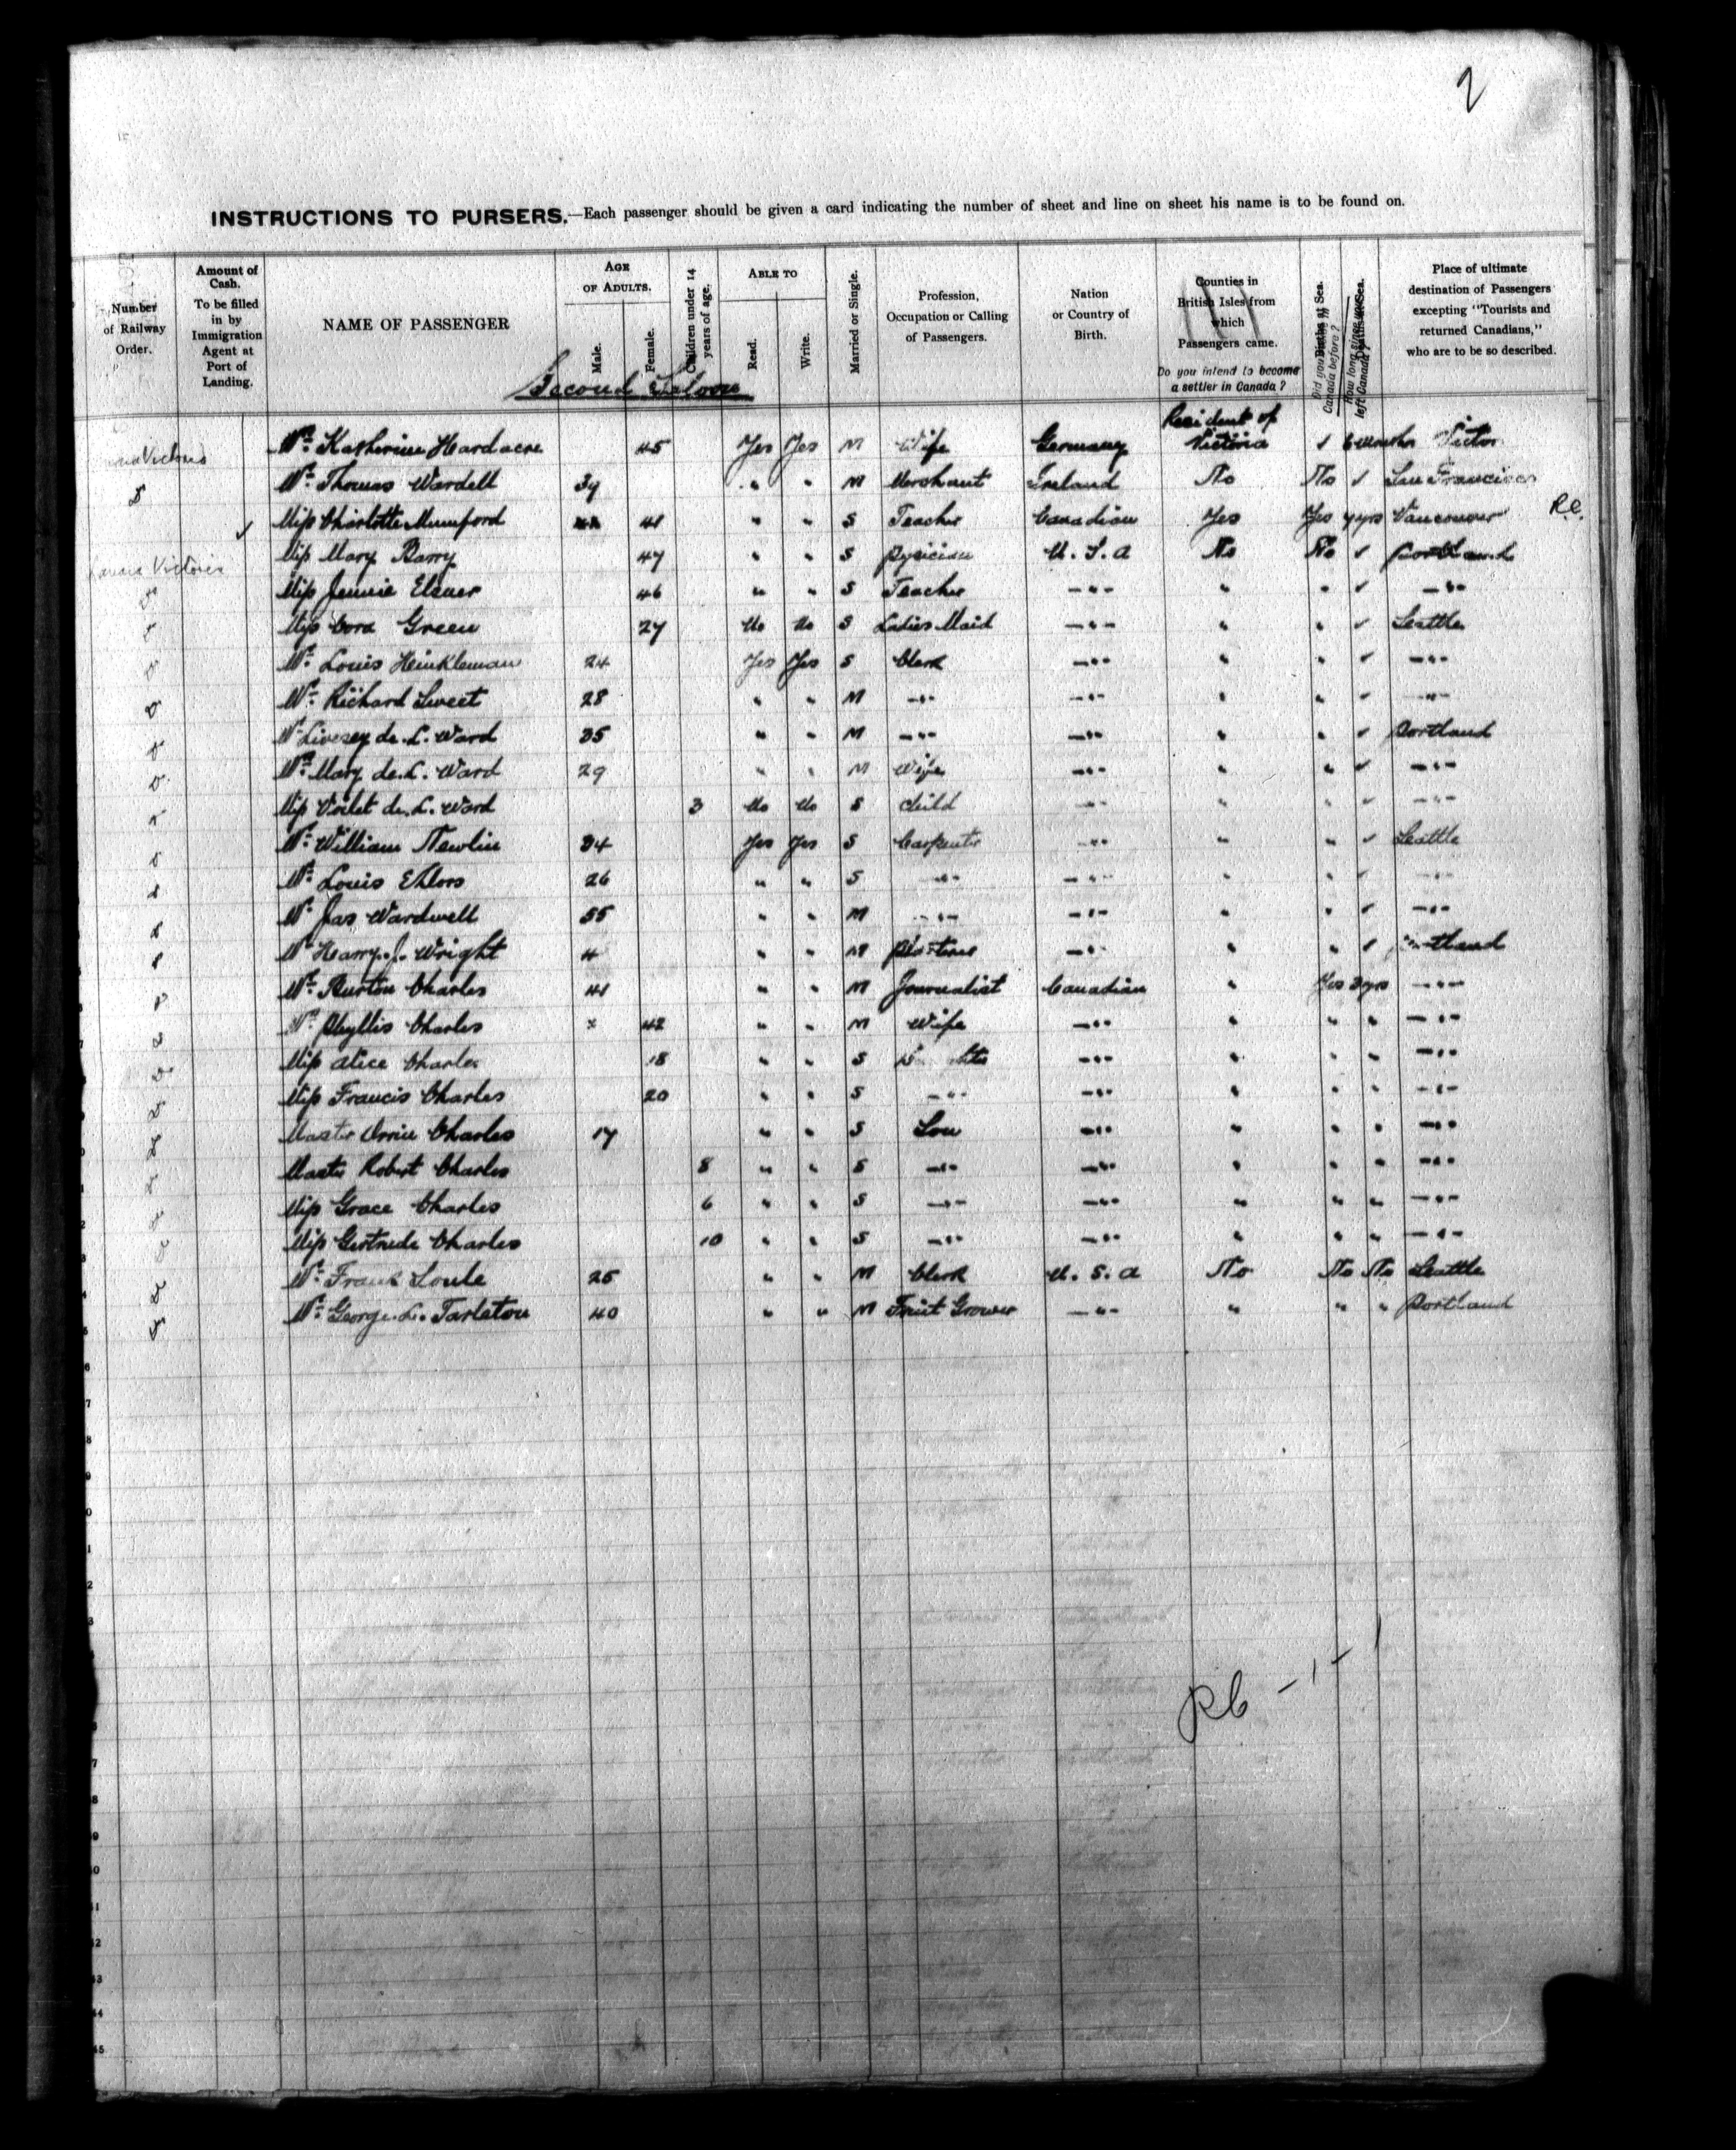 2
INSTRUCTIONS TO PURSERS.—Each passenger should be given a card indicating the number of sheet and line on sheet his name is to be found on.
Number of Railway Order.
Amount of Cash. To be filled in by Immigration Agent at Port of Landing.
NAME OF PASSENGER
AGE OF ADULTS.
Male.
Female.
Children under 14 years of age.
ABLE TO
Read.
Write.
Married or Single.
Profession, Occupation or Calling of Passengers.
Nation or Country of Birth.
Counties in British Isles from which Passengers came.
Do you intend to become a settler in Canada?
Births at Sea.
Canada before?
Deaths at Sea.
How long since you left Canada?
Place of ultimate destination of Passengers excepting "Tourists and returned Canadians," who are to be so described.
Second Saloon
Resident of
Victoria Mrs. Katherine Hardacre 45 Yes Yes M Wife Germany Victoria ✓ 6 months
Mr. Thomas Wardell 37 " " M Merchant Ireland No No ✓ San Francisco
✓ Miss Charlotte Mumford 41 " " S Teacher Canadian Yes Yes 7 yrs Vancouver R.C.
Victoria Miss Mary Barry 47 " " S Pysician U. S. A No No ✓ Portland
Miss Jennie Elsner 46 " " S Teacher —"— " " ✓ —"—
Miss Cora Green 27 No No S Ladies Maid —"— " " ✓ Seattle
Mr. Louis Heinkleman 24 Yes Yes S Clerk —"— " " ✓ —"—
Mr. Richard Sweet 28 " " M —"— —"— " " ✓ —"—
Mr Livesey de. L. Ward 35 " " M —"— —"— " " ✓ Portland
Mrs. Mary de. L. Ward 29 " " M Wife —"— " " ✓ —"—
Miss Voilet de. L. Ward 3 No No S Child —"— " " ✓ —"—
Mr. William Newlin 34 Yes Yes S Carpenter —"— " " ✓ Seattle
Mr. Louis Ehlors 26 " " S —"— —"— " " ✓ —"—
Mr. Jas Wardwell 55 " " M —"— —"— " " ✓ —"—
Mr Harry. J. Wright " " M —"— " " ✓ Portland
Mr. Burton Charles 41 " " M Journalist Canadian " Yes 3 yrs —"—
Mrs. Phyllis Charles 42 " " M Wife —"— " " " —"—
Miss Alice Charles 18 " " S Daughter —"— " " " —"—
Miss Francis Charles 20 " " S —"— —"— " " " —"—
Master Orrin Charles 17 " " S Son —"— " " " —"—
Master Robert Charles 8 " " S —"— —"— " " " —"—
Miss Grace Charles 6 " " S —"— —"— " " " —"—
Miss Gertrude Charles 10 " " S —"— —"— " " " —"—
Mr. Frank Soule 25 " " M Clerk U. S. A No No No Seattle
Mr. George. L. Tarleton 40 " " M Fruit Grower —"— " " " Portland
RC — 1 — 1